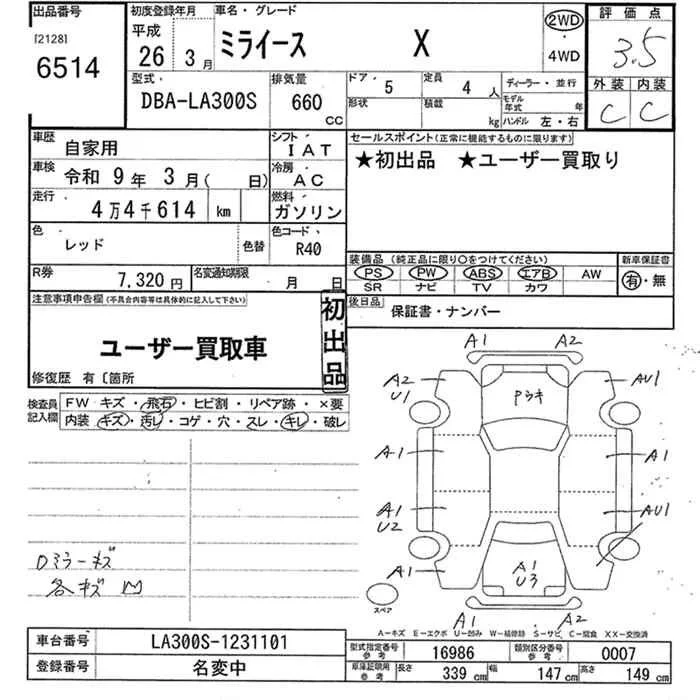 出品番号 初度登録年月 車名・グレード 評価点
[2128] 平成 2WD
6514 26年 3月 ミライース X ・ 3.5
4WD
型式 排気量 ドア・形状 5 定員 4人 ディーラー・並行 外装 内装
DBA-LA300S 660cc 積載 kg モデル年式 年 C C
ハンドル 左・右
車歴 自家用 シフト IAT セールスポイント(正常に機能するものに限ります)
車検 令和 9年 3月( 日) 冷房 AC ★初出品 ★ユーザー買取り
走行 4万4千614 km 燃料 ガソリン
色 レッド 色替 色コード R40
装備品(純正品に限り〇をつけてください) 新車保証書
R券 7,320円 名変通知期限 月 日 PS PW ABS エアB AW 有・無
SR ナビ TV カワ
注意事項申告欄(不具合内容等は具体的に記入して下さい) 初出品 後日品 保証書・ナンバー
ユーザー買取車
修復歴 有〔箇所
検査員記入欄 FW キズ・飛石・ヒビ割・リペア跡・×要
内装 キズ・汚レ・コゲ・穴・スレ・キレ・破レ
A1 A2
A2 U1 Pウキ AU1
A1 A1
A1 U2 AU1
A1 A1 U3
A1 A2
スペア
Dミラーキズ
各キズ凹
A-キズ E-エクボ U-凹み W-補修跡 S-サビ C-腐食 XX-交換済
車台番号 LA300S-1231101
登録番号 名変中
型式指定番号 参考 16986 類別区分番号 参考 0007
車庫証明用 参考 長さ 339cm 幅 147cm 高さ 149cm